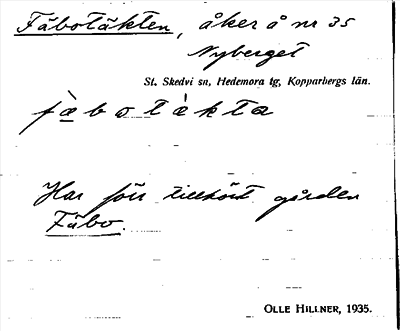 Fäbotäkten, åker å nr 35
Nyberget
St. Skedvi sn, Hedemora tg, Kopparbergs län.
fæ̀botèkta
Har förr tillhört gården
Fäbo.
OLLE HILLNER, 1935.